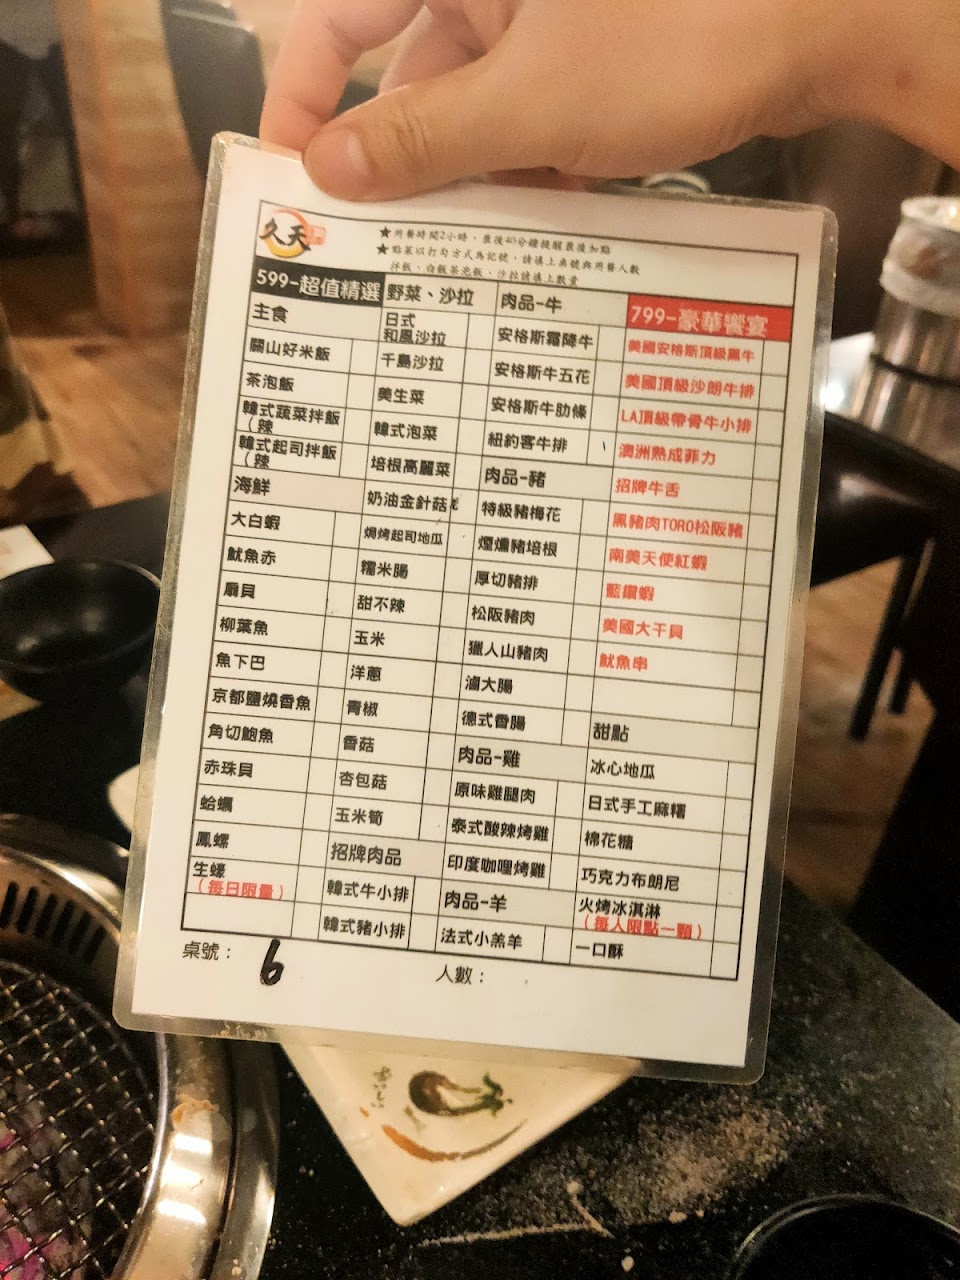 久天
★用餐時間2小時，最後40分鐘提醒最後加點
★點菜以打勾方式為記號，請填上桌號與用餐人數
拌飯、白飯茶泡飯、沙拉請填上數量
599-超值精選
主食
關山好米飯
茶泡飯
韓式蔬菜拌飯
（辣
韓式起司拌飯
（辣
海鮮
大白蝦
魷魚赤
扇貝
柳葉魚
魚下巴
京都鹽燒香魚
角切鮑魚
赤珠貝
蛤蠣
鳳螺
生蠔
（每日限量）
野菜、沙拉
日式
和風沙拉
千島沙拉
美生菜
韓式泡菜
培根高麗菜
奶油金針菇
焗烤起司地瓜
糯米腸
甜不辣
玉米
洋蔥
青椒
香菇
杏包菇
玉米筍
招牌肉品
韓式牛小排
韓式豬小排
肉品-牛
安格斯霜降牛
安格斯牛五花
安格斯牛肋條
紐約客牛排
肉品-豬
特級豬梅花
煙燻豬培根
厚切豬排
松阪豬肉
獵人山豬肉
滷大腸
德式香腸
肉品-雞
原味雞腿肉
泰式酸辣烤雞
印度咖哩烤雞
肉品-羊
法式小羔羊
799-豪華饗宴
美國安格斯頂級黑牛
美國頂級沙朗牛排
LA頂級帶骨牛小排
澳洲熟成菲力
招牌牛舌
黑豬肉TORO松阪豬
南美天使紅蝦
藍鑽蝦
美國大干貝
魷魚串
甜點
冰心地瓜
日式手工麻糬
棉花糖
巧克力布朗尼
火烤冰淇淋
（每人限點一顆）
一口酥
桌號：6
人數：